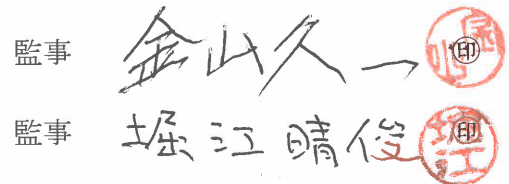 監事 金山久一 ㊞
監事 堀江晴俊 ㊞